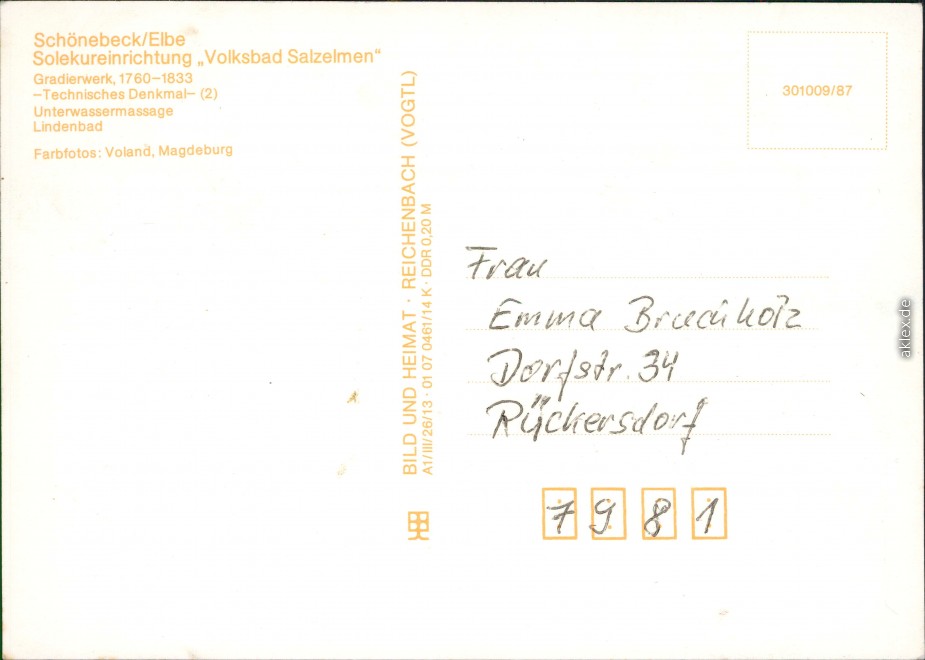 Schönebeck/Elbe
Solekureinrichtung „Volksbad Salzelmen“
Gradierwerk, 1760–1833
–Technisches Denkmal– (2)
Unterwassermassage
Lindenbad
Farbfotos: Voland, Magdeburg
BILD UND HEIMAT · REICHENBACH (VOGTL)
A1/III/26/13 · 01 07 0461/14 K · DDR 0,20 M
301009/87
Frau
Emma
Dorfstr. 34
Rückersdorf
7981
aklex.de